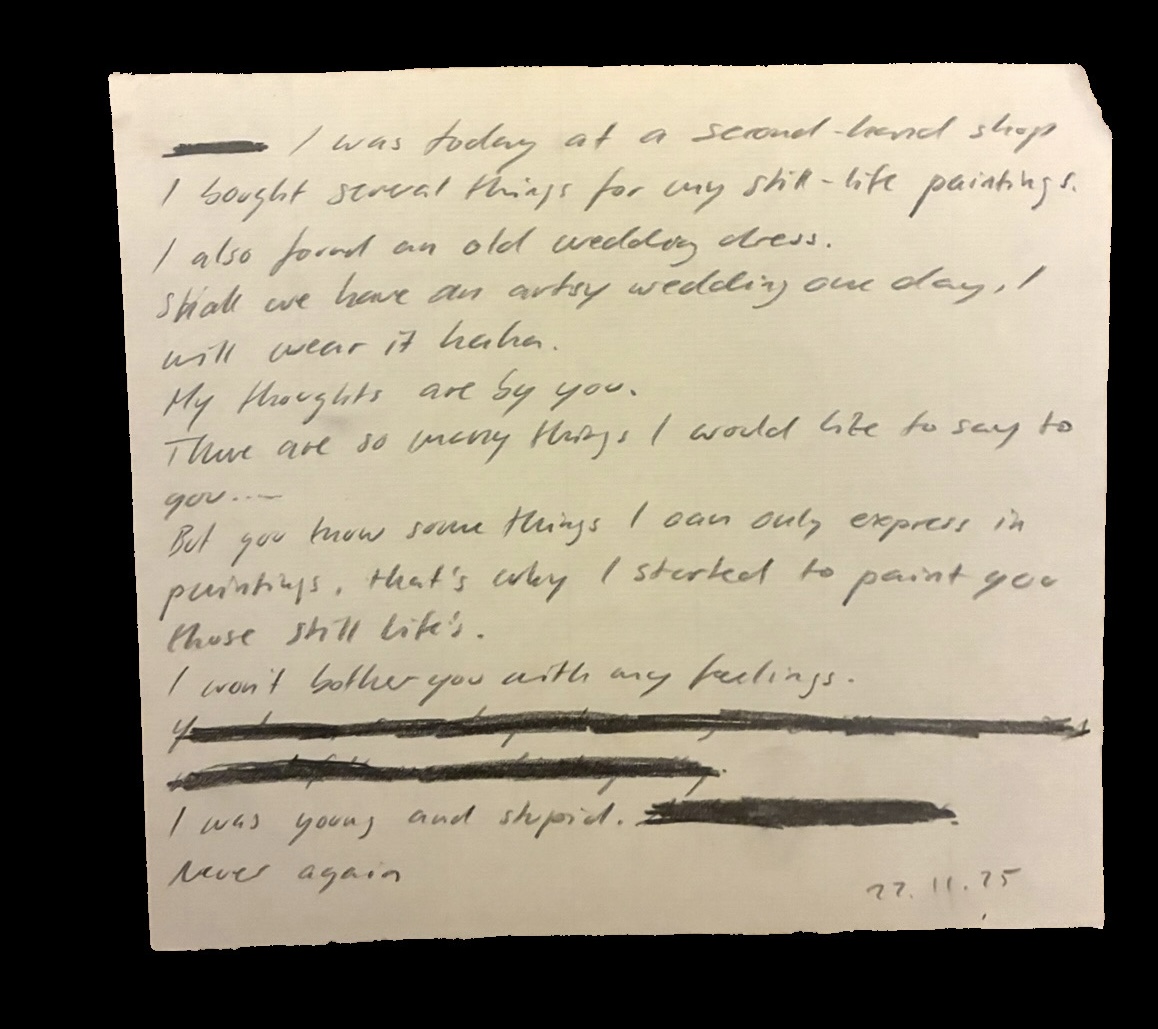 I was today at a second-hand shop
I bought several things for my still-life paintings.
I also found an old wedding dress.
Shall we have an artsy wedding one day, I
will wear it haha.
My thoughts are by you.
There are so many things I would like to say to
you....
But you know some things I can only express in
paintings, that's why I started to paint you
those still life's.
I won't bother you with my feelings.
I was young and stupid.
Never again
22.11.25